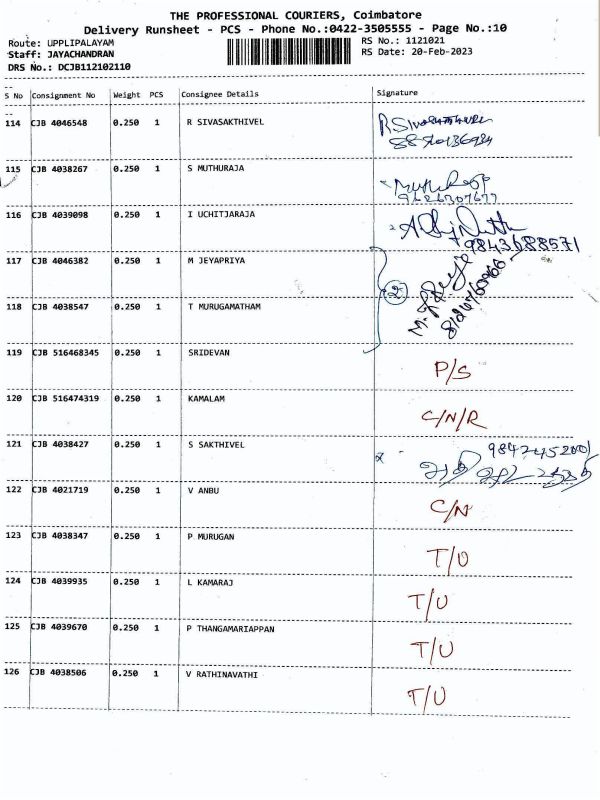 THE PROFESSIONAL COURIERS, Coimbatore
Delivery Runsheet - PCS - Phone No.:0422-3505555 - Page No.:10
Route: UPPLIPALAYAM RS No.: 1121021
Staff: JAYACHANDRAN RS Date: 20-Feb-2023
DRS No.: DCJB112102110
S No Consignment No Weight PCS Consignee Details Signature
114 CJB 4046548 0.250 1 R SIVASAKTHIVEL
115 CJB 4038267 0.250 1 S MUTHURAJA
116 CJB 4039098 0.250 1 I UCHITJARAJA
9843688571
117 CJB 4046382 0.250 1 M JEYAPRIYA
2
118 CJB 4038547 0.250 1 T MURUGAMATHAM
119 CJB 516468345 0.250 1 SRIDEVAN P/S
120 CJB 516474319 0.250 1 KAMALAM C/N/R
121 CJB 4038427 0.250 1 S SAKTHIVEL 9842452001
122 CJB 4021719 0.250 1 V ANBU C/N
123 CJB 4038347 0.250 1 P MURUGAN T/O
124 CJB 4039935 0.250 1 L KAMARAJ T/U
125 CJB 4039670 0.250 1 P THANGAMARIAPPAN T/U
126 CJB 4038506 0.250 1 V RATHINAVATHI T/U